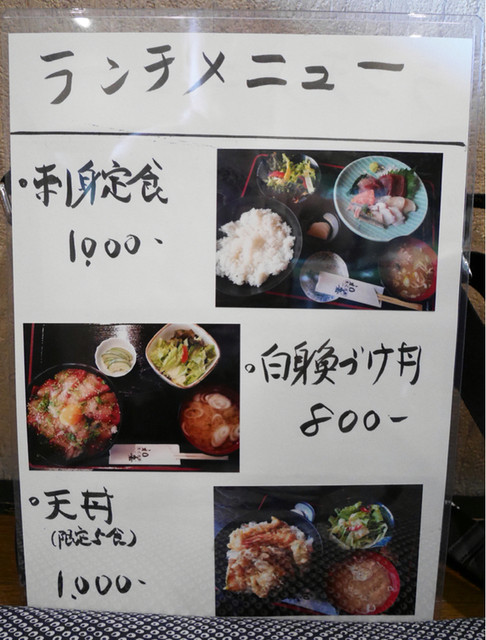 ランチメニュー
刺身定食
1,000-
白身魚づけ丼
800-
天丼
(限定5食)
1,000-